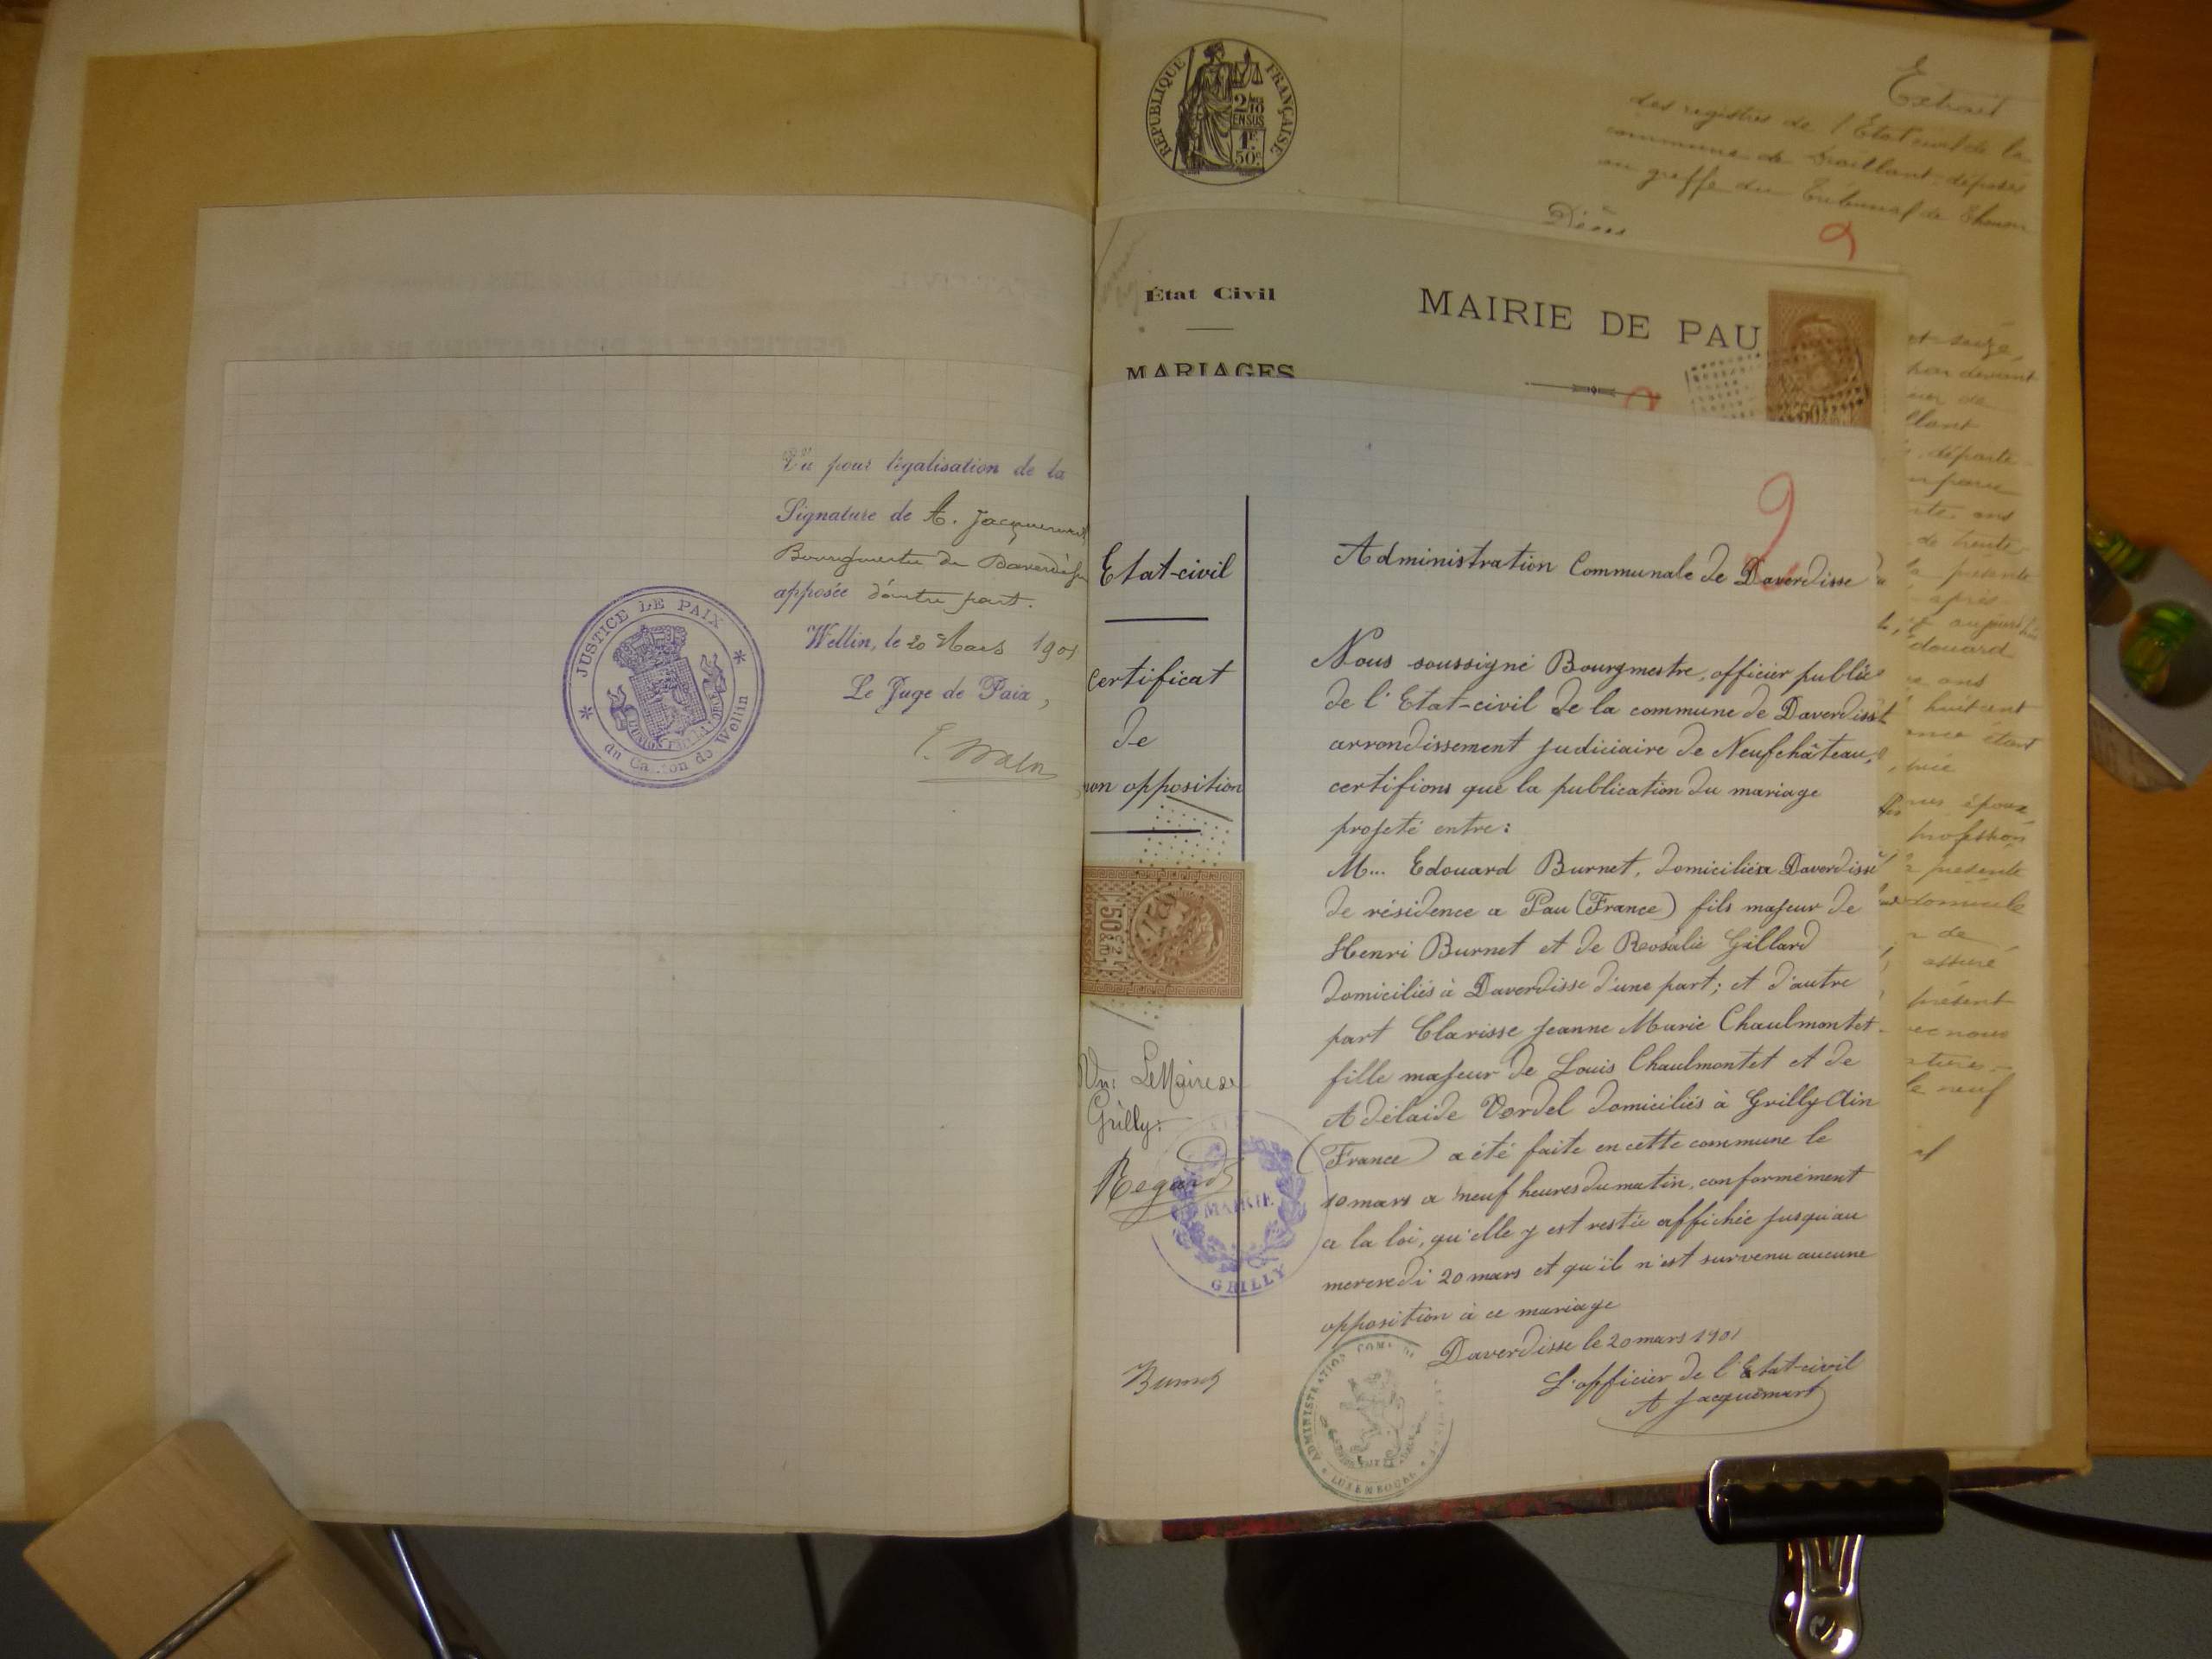 Vu pour légalisation de la
Signature de A. Jacquemart
Bourgmestre de Daverdisse
apposée d'autre part.
Wellin, le 20 Mars 1901
Le Juge de Paix,
JUSTICE DE PAIX
du Canton de Wellin
RÉPUBLIQUE FRANÇAISE
2/10
EN SUS
1F
50c
Extrait
des registres de l'Etat civil de la
commune de Draillant déposés
au greffe du Tribunal de Thonon
Décès
9
État Civil
MARIAGES
MAIRIE DE PAU
Etat-civil
certificat
de
non opposition
50c
Vu: Le Maire de
Grilly:
Regard
MAIRIE
GRILLY
Burnet
9
Administration Communale de Daverdisse
Nous soussigné Bourgmestre, officier public
de l'Etat-civil de la commune de Daverdisse
arrondissement judiciaire de Neufchâteau,
certifions que la publication du mariage
projeté entre:
M... Edouard Burnet, domicilié a Daverdisse
de résidence a Pau (France) fils majeur de
Henri Burnet et de Rosalie Gillard
domiciliés à Daverdisse d'une part; et d'autre
part Clarisse Jeanne Marie Chaulmontet
fille majeur de Louis Chaulmontet et de
Adélaide Vordel domiciliés à Grilly Ain
(France) a été faite en cette commune le
10 mars a neuf heures du matin, conformément
a la loi, qu'elle y est restée affichée jusqu'au
mercredi 20 mars et qu'il n'est survenu aucune
opposition à ce mariage
Daverdisse le 20 mars 1901
L'officier de l'Etat-civil
A Jacquemart
ADMINISTRATION COM
LUXEMBOURG
et seize
par devant
llant
départe
de trente
la présente
après
aujourd'hui
Edouard
ans
huit cent
étant
époux
profession
présente
domicile
de
assuré
présent
nous
le neuf